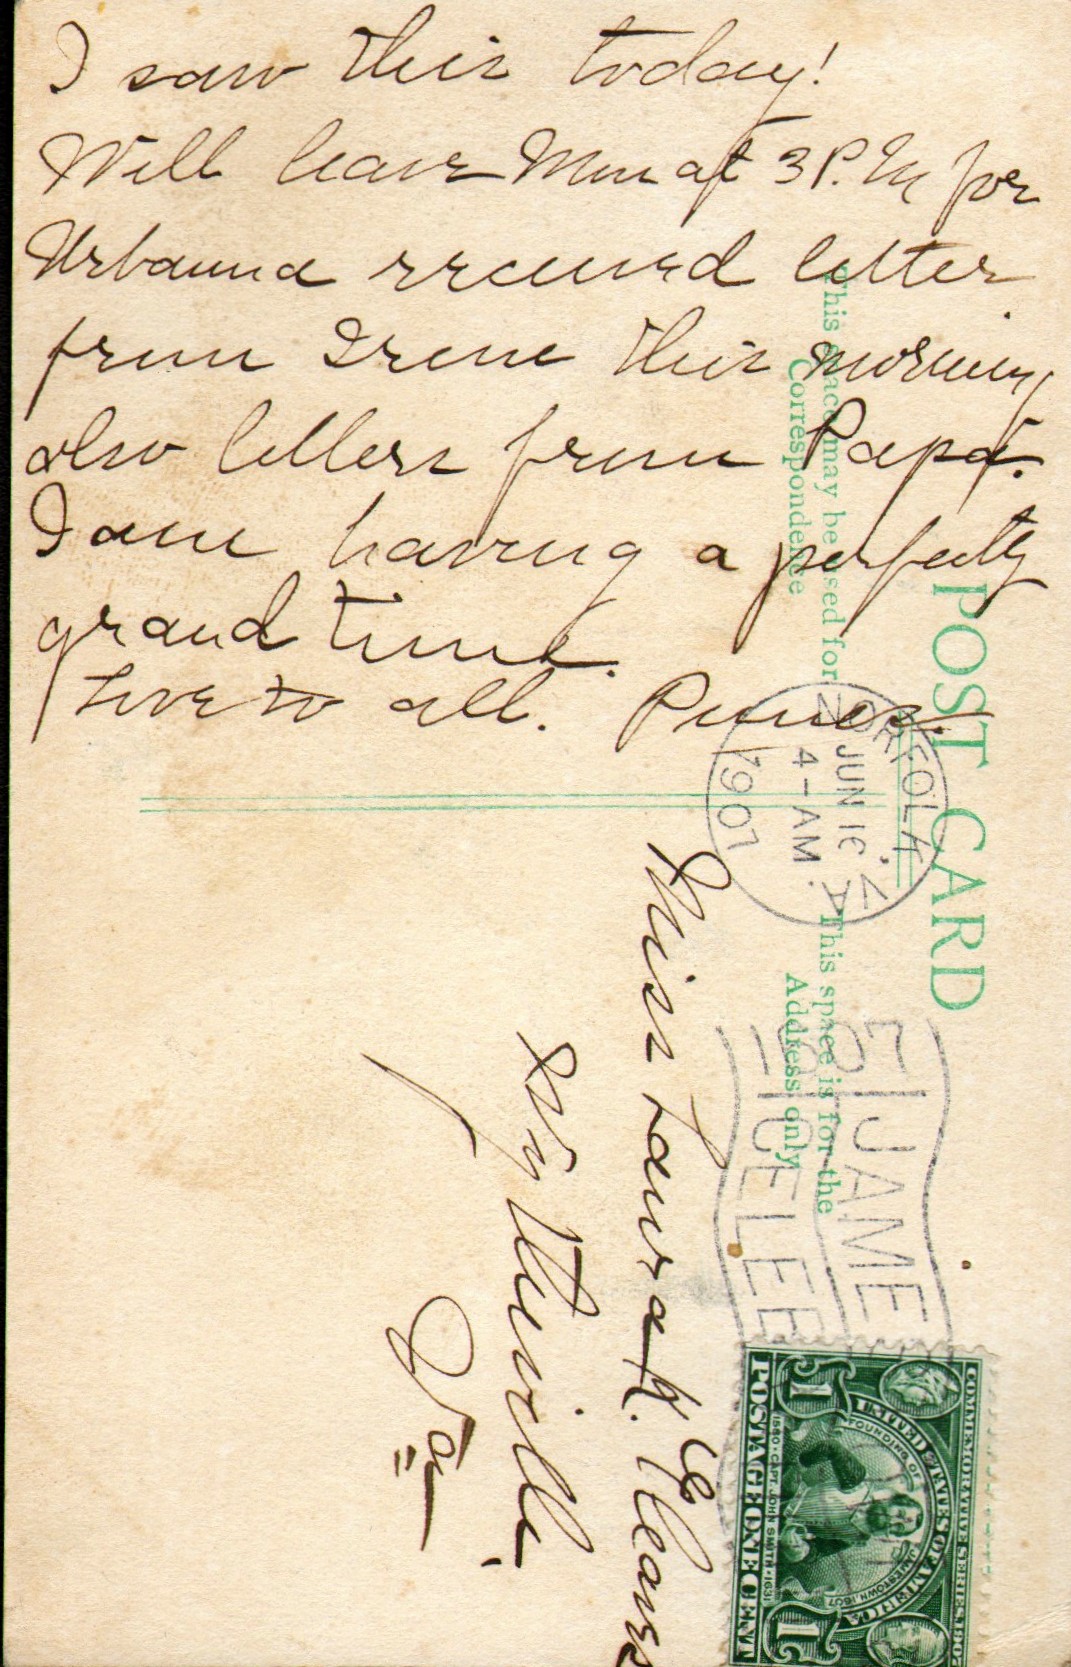 I saw this today!
Will leave Mon at 3 P.M for
Urbanna received letter
from Irene this morning
also letters from Papa.
I am having a perfectly
grand time.
Love to all.
POST CARD
This space may be used for
Correspondence
This space is for the
Address only
NORFOLK, VA.
JUN 16
4-AM
1907
JAME
CELEB
Miss Laura K. Cleaves
Wytheville.
Va
COMMEMORATIVE SERIES 1907
UNITED STATES OF AMERICA
FOUNDING OF
JAMESTOWN 1607
1580 · CAPT. JOHN SMITH · 1631
1 1
POSTAGE ONE CENT